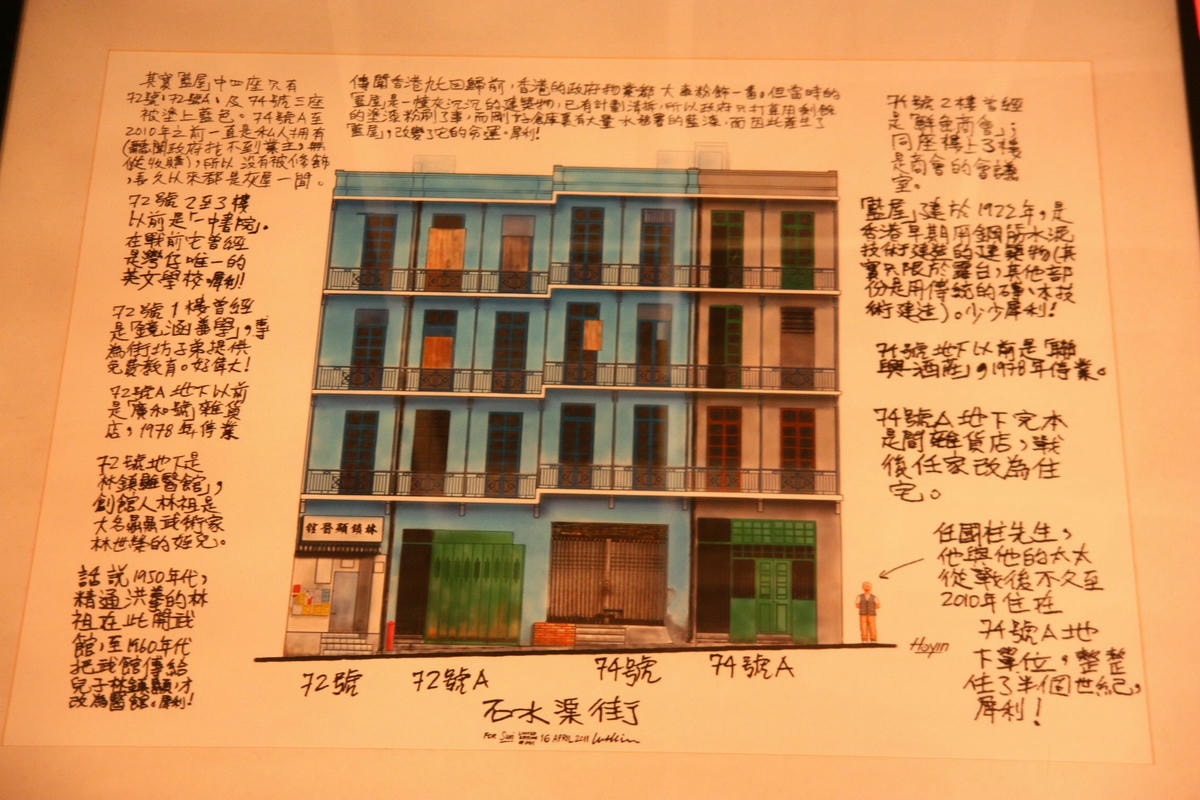 其實「藍屋」中四座只有
72號，72號A，及 74號三座
被塗上藍色。74號A至
2010年之前一直是私人擁有
(聽聞政府找不到業主，無
從收購)，所以沒有被修飾
，長久以來都是灰屋一間。
72號 2至3樓
以前是「一中書院」。
在戰前它曾經
是灣仔唯一的
英文學校。犀利!
72號 1樓曾經
是「鏡涵義學」，專
為街坊子弟提供
免費教育。好偉大!
72號A 地下以前
是「廣和號」雜貨
店，1978年停業
72號地下是
林鎮顯醫館」，
創館人林祖是
大名鼎鼎武術家
林世榮的姪兒。
話說1950年代，
精通洪拳的林
祖在此開武
館，至1960年代
把武館傳給
兒子林鎮顯，才
改為醫館。犀利!
傳聞香港九七回歸前，香港的政府物業都大事粉飾一番。但當時的
「藍屋」是一幢灰沉沉的建築物，已有計劃清拆，所以政府只打算用剩餘
的塗漆粉刷了事，而剛好倉庫裏有大量水務署的藍漆，而因此產生了
「藍屋」，改變了它的命運。犀利!
74號 2樓曾經
是「鮮魚商會」，
同座樓上3樓
是商會的會議
室。
「藍屋」建於1922年，是
香港早期用鋼筋水泥
技術建造的建築物(其
實只限於露台，其他部
份是用傳統的磚、木技
術建造)。少少犀利!
74號地下以前是「聯
興酒莊」，1978年停業。
74號A地下完本
是間雜貨店，戰
後任家改為住
宅。
任國柱先生，
他與他的太太
從戰後不久至
2010年住在
74號A地
下單位，整整
住了半個世紀，
犀利!
林鎮顯醫館
Hoyin
72號
72號A
74號
74號A
石水渠街
FOR Suzi LIMITED EDITION 16 APRIL 2011